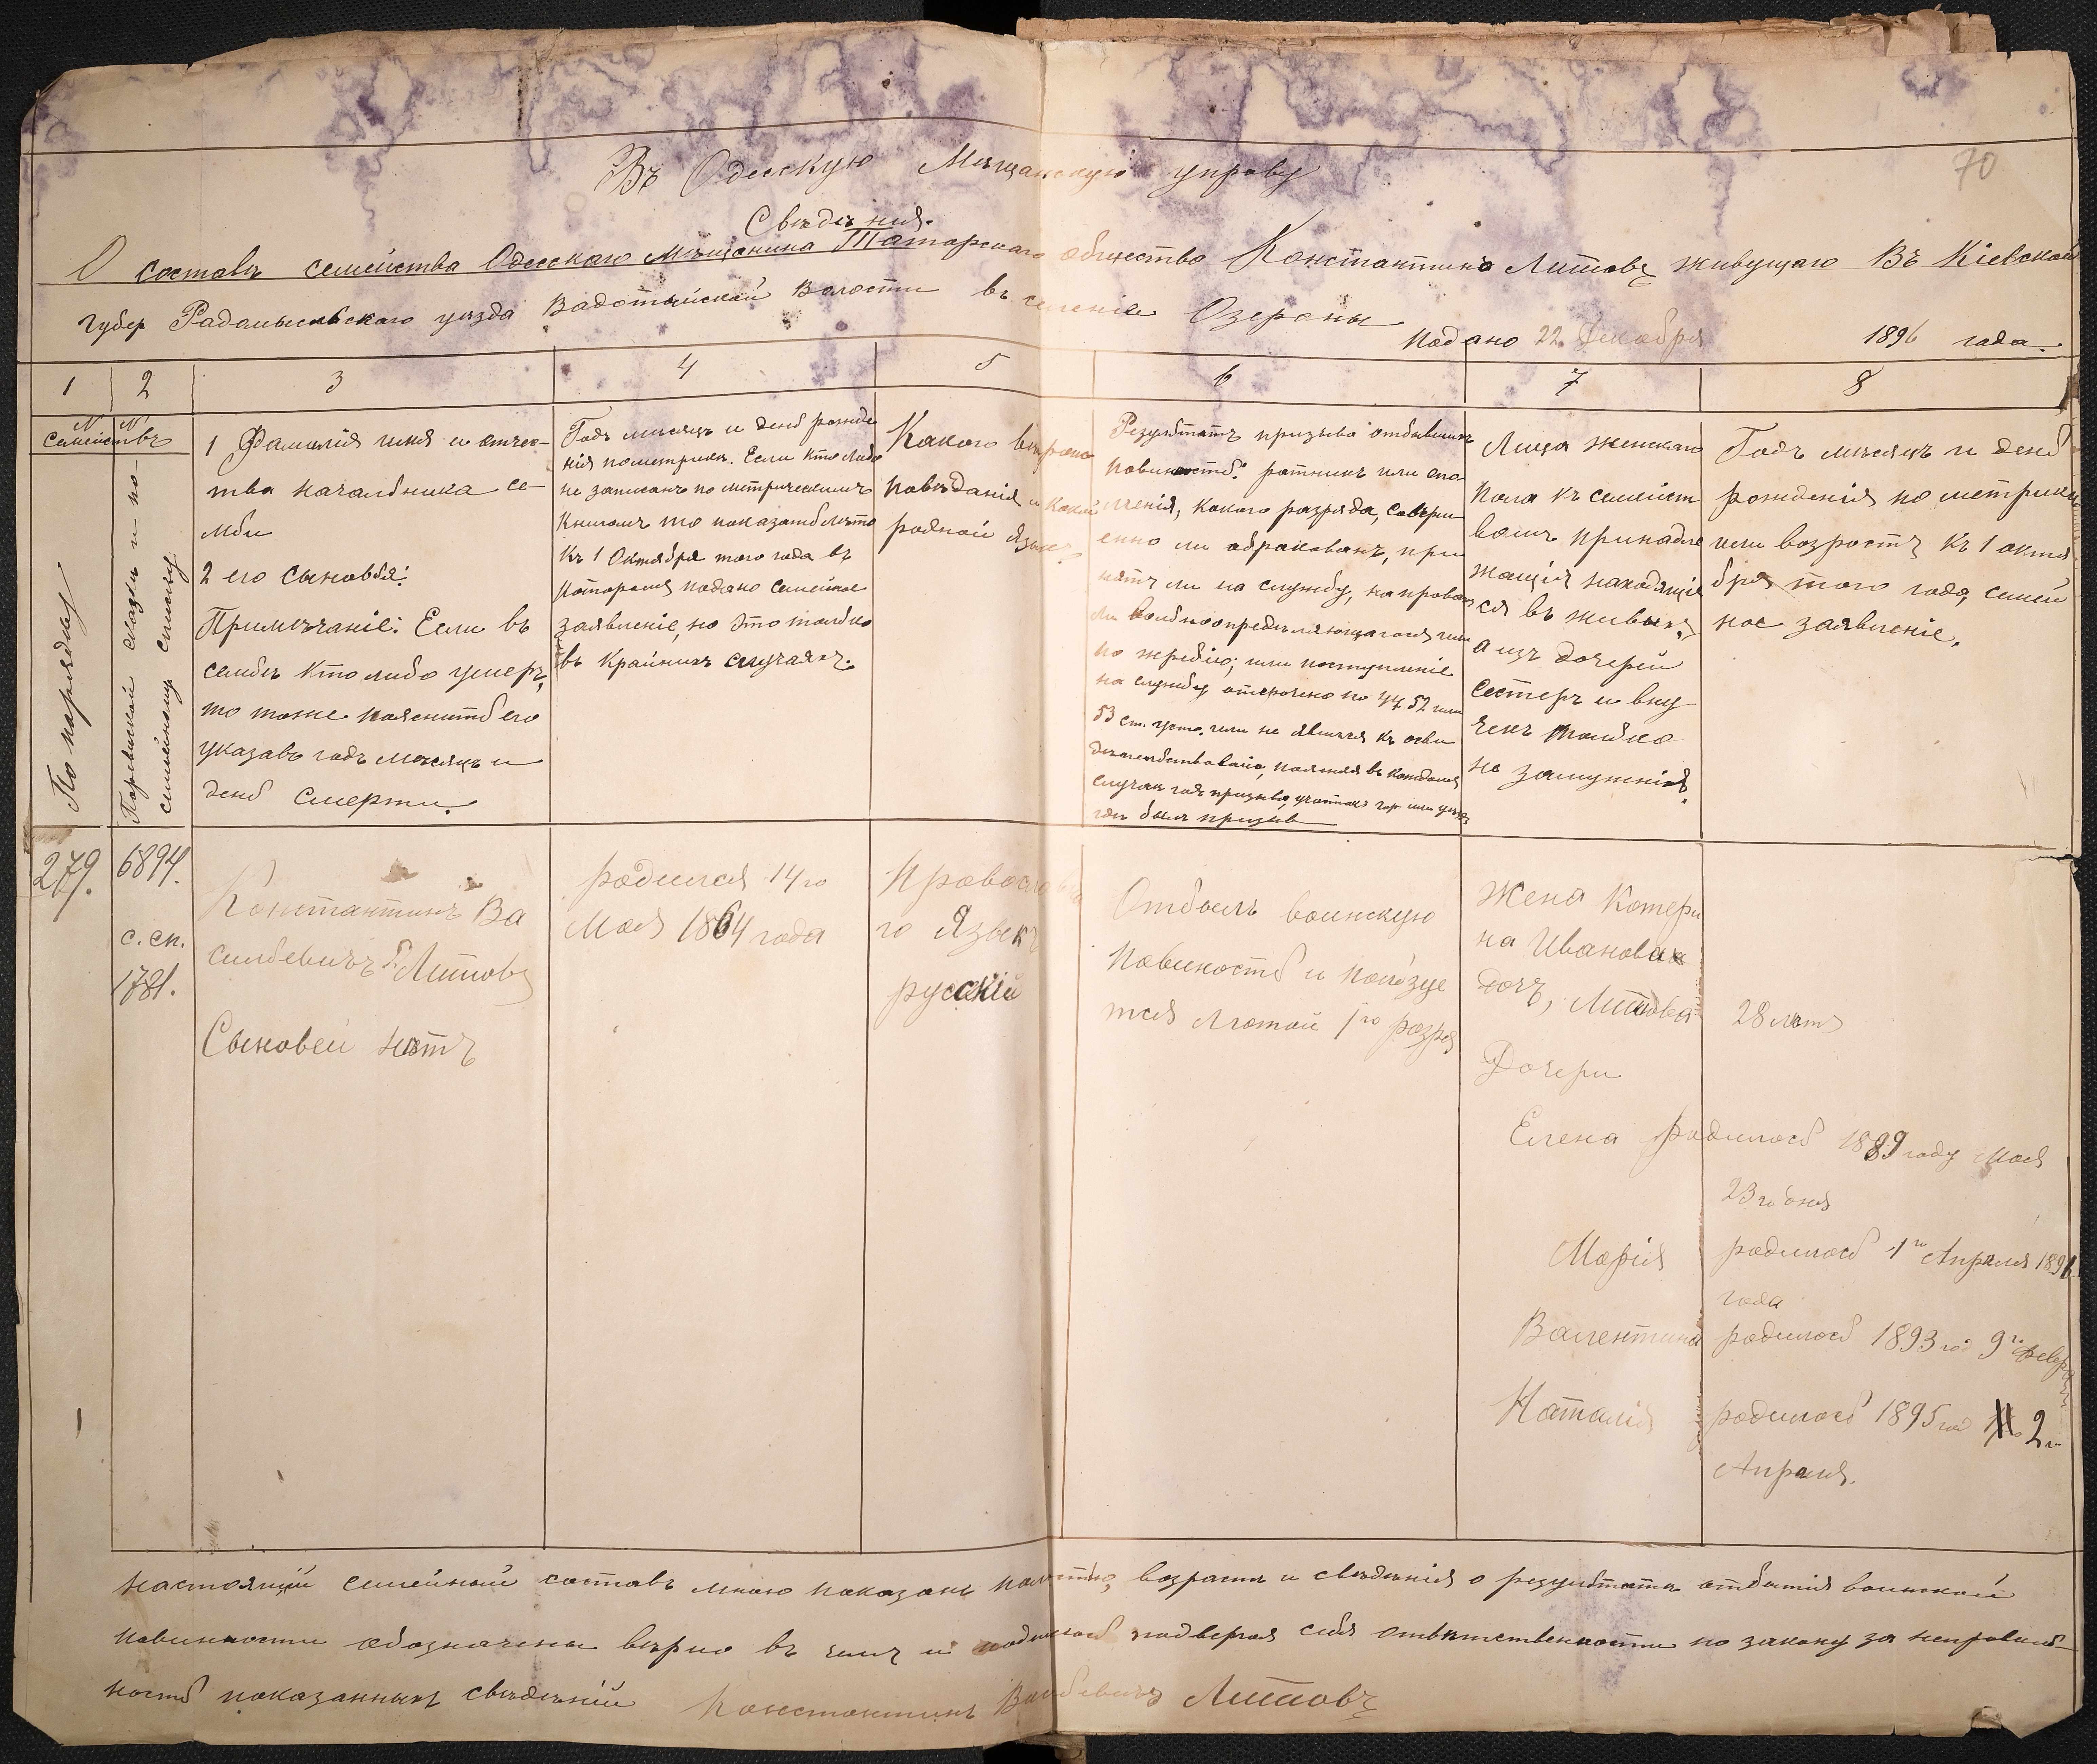 70
Въ Одесскую Мѣщанскую управу
Свѣдѣния.
О составѣ семейства Одесскаго Мѣщанина Татарскаго общества Константина Литовъ живущаго Въ Кіевской
губер Радомысльскаго уѣзда Вадотыйской Волости въ селеніе Озераны
Подано 22 Декабря 1896 года.
1 2 3 4 5 6 7 8
N N
Семействъ
По порядку
по-
семейному списку
1 Фамилія имя и отчес-
тва начальника се-
мьи
2 его сыновья:
Примѣчаніе: Если въ
семьѣ кто либо умеръ,
то тоже пояснить его
указавъ годъ мѣсяцъ и
день смерти.
Годъ мѣсяцъ и день рожде
нія по метрикѣ. Если кто либо
не записанъ по метрическимъ
книгамъ то показать лѣта
къ 1 Октября того года въ
котором подано семейное
заявленіе, но это только
въ крайнихъ случаяхъ.
Какого вѣроис
повѣданія и какой
родной языкъ.
Результатъ призыва отбывшихъ
повиность: ратникъ или опо
лченія, какого разряда, соверш
енно ли забракованъ, при
нятъ ли на службу, на правахъ
ли вольноопредѣляющагося или
по жребію; или поступленіе
на службу отсрочено по 44, 52 или
53 ст. уста, или не явился къ осви
дѣтельствованію, поясняя въ каждомъ
случаѣ годъ призыва, участокъ гор или уѣздъ
гдѣ былъ призыв
Лица женскаго
пола къ семейст
вамъ принадле
жащія находящіе
ся въ живыхъ,
а изъ дочерей
сестеръ и вну
чекъ только
не замужнія.
Годъ мѣсяцъ и день
рожденія по метрикѣ
или возрастъ къ 1 октя
бря того года, семей
ное заявленіе.
279.
6894.
с. сп.
1781.
Константинъ Ва
сильевичъ Литовъ
Сыновей нѣтъ
родился 14го
Мая 1864 года
Православна
го Языкъ
русскій
Отбылъ воинскую
повиность и пользуе
тся льготой 1го разря
Жена Катери
на Иванова
дочъ, Литова
28 лѣтъ
Дочери
Елена родилась 1889 году Мая
23го дня
Марія родилась 1го Апрѣля 1891
года
Валентина родилась 1893 год 9го Февраля
Наталія родилась 1895 год 2го
Апрѣля.
Настоящій семейный составъ мною показанъ полностью, возрасты и свѣденія о результатѣ отбытія воинской
повинности обозначены вѣрно въ чемъ и подписась подвергая себя отвѣтственности по закону за неправиль
ность показанныхъ свѣдѣній Константинъ Васильевичъ Литовъ